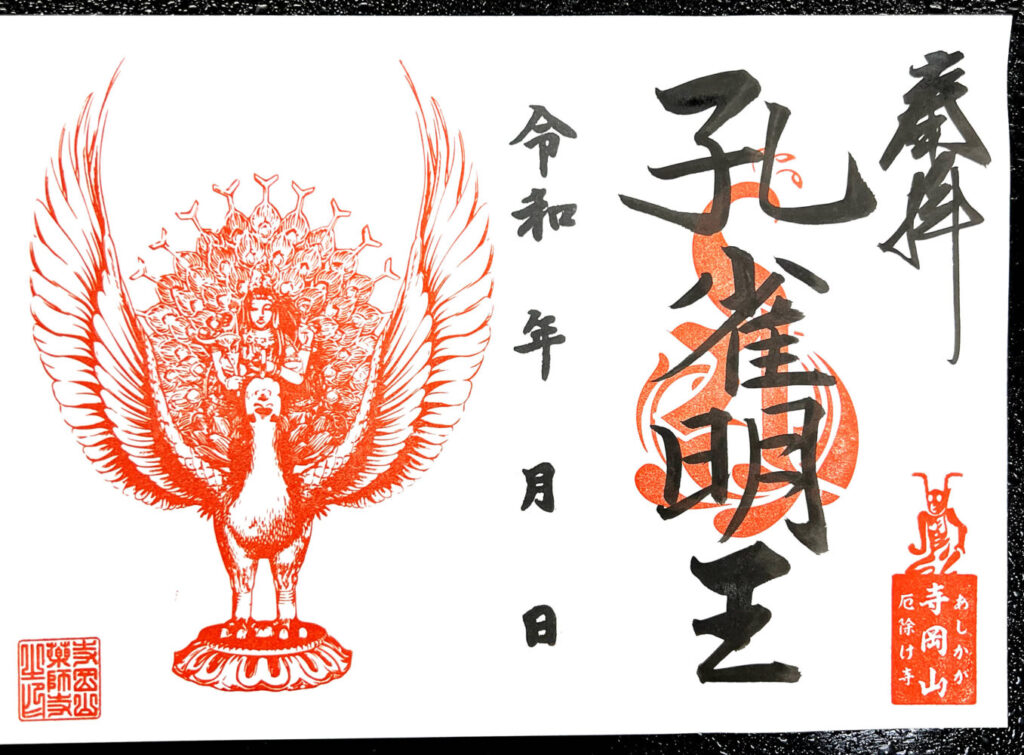 奉拝
あしかが
寺岡山
厄除け寺
孔雀明王
令和 年 月 日
寺岡山
薬師寺
之印